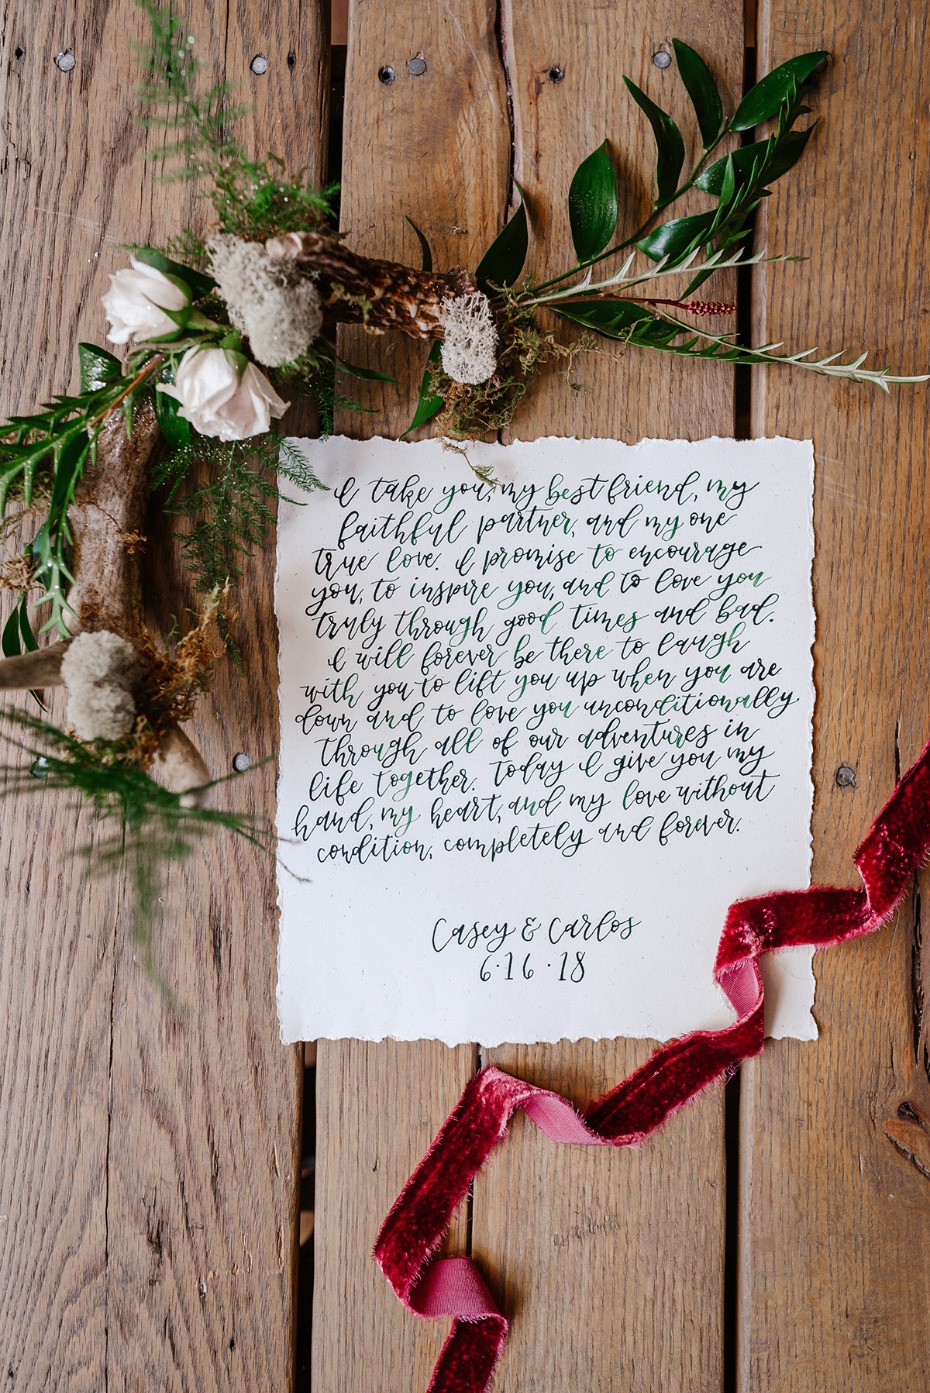 I take you, my best friend, my
faithful partner, and my one
true love. I promise to encourage
you, to inspire you, and to love you
truly through good times and bad.
I will forever be there to laugh
with you to lift you up when you are
down and to love you unconditionally
through all of our adventures in
life together. Today I give you my
hand, my heart, and my love without
condition, completely and forever.
Casey & Carlos
6·16·18